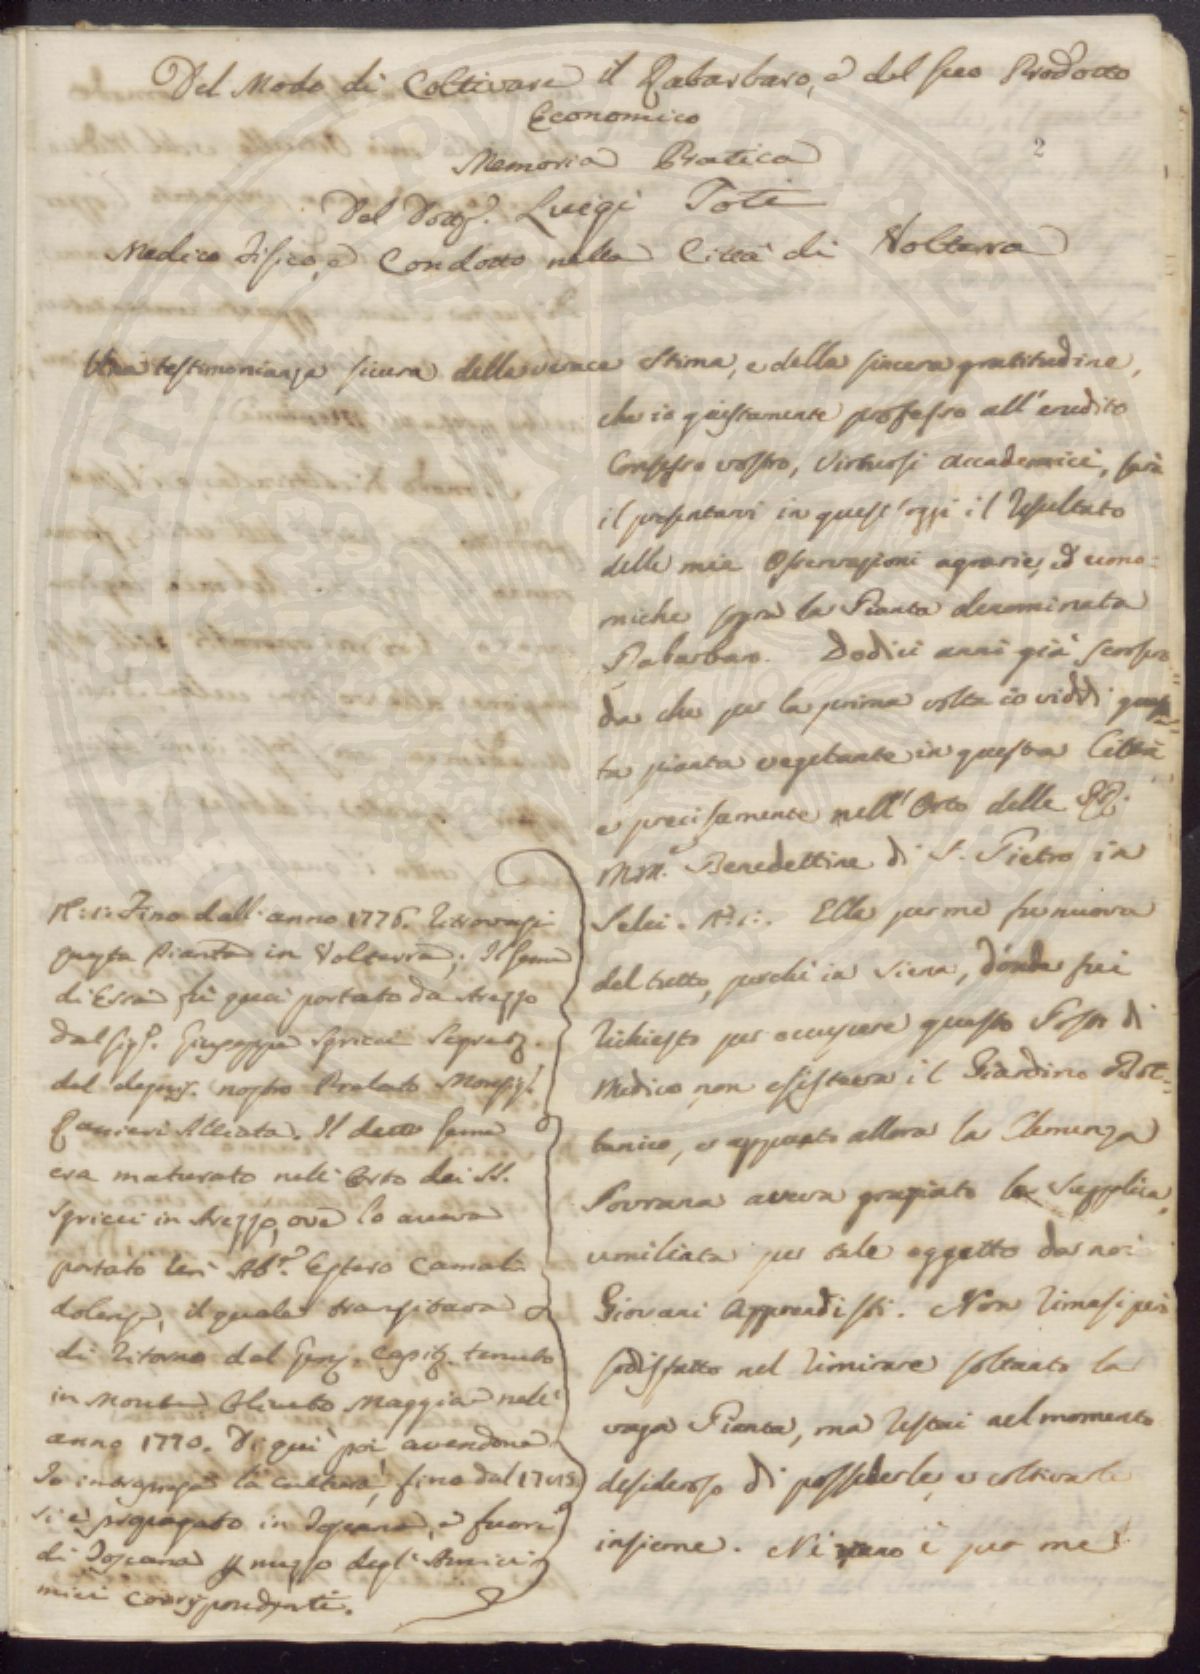 Del Modo di Coltivare il Rabarbaro, e del suo Prodotto
Economico
Memoria Pratica
2
Del Dott.r Luigi Toti
Medico Fisico, e Condotto nella Città di Volterra
Una testimonianza sicura della verace stima, e della sincera gratitudine,
che io giustamente professo all'erudito
Consesso vostro, Virtuosi Accademici, sarà
il presentarvi in quest'oggi il resultato
delle mie Osservazioni agrarie, ed econo=
miche sopra la Pianta denominata
Rabarbaro. Dodici anni già scorsero
da che per la prima volta io viddi ques=
ta pianta vegetante in questa Città
e precisamente nell'Orto delle RR.
MM. Benedettine di S. Pietro in
Selci. N: 1:. Ella per me fu nuova
del tutto, perchè in Siena, donde fui
richiesto per occupare questo Posto di
Medico, non esisteva il Giardino Bot=
tanico, e appunto allora la Clemenza
Sovrana aveva graziato la Supplica,
umiliata per tale oggetto da noi
Giovani Apprendisti. Non rimasi però
sodisfatto nel rimirare soltanto la
vaga Pianta, ma restai nel momento
desideroso di possederla, e coltivarla
insieme. Ne vano è per me
N: 1: Fino dall'anno 1776. ritrovasi
questa Pianta in Volterra; Il seme
di Essa fù quà portato da Arezzo
dal Sig.r Giuseppe Sgricci Segret.
del nostro Prelato Monsig.r
Ranieri Alliata. Il detto seme
era maturato nell'Orto dei SS.
Sgricci in Arezzo, ove lo aveva
portato Ab.e Estero Camal=
dolense, il quale transitava
di ritorno dal Gen. Capit. tenuto
in Monte Oliveto Maggiore nell'
anno 1770. Di qui poi avendone
Io intrapresa la cultura, fino dal
si è propagato in Toscana, e fuori
di Toscana p mezzo degl'Amici
miei corrispondenti.